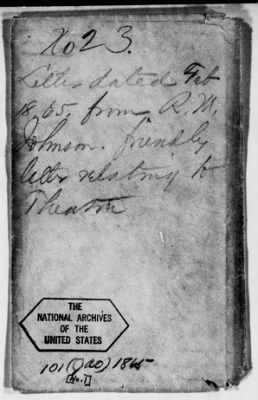 No 23.
Letter dated Feb
18, 65, from R. M.
Johnson. friendly
letter relating to
Theatre
THE
NATIONAL ARCHIVES
OF THE
UNITED STATES
101 (JAO) 1865
[No. 1]